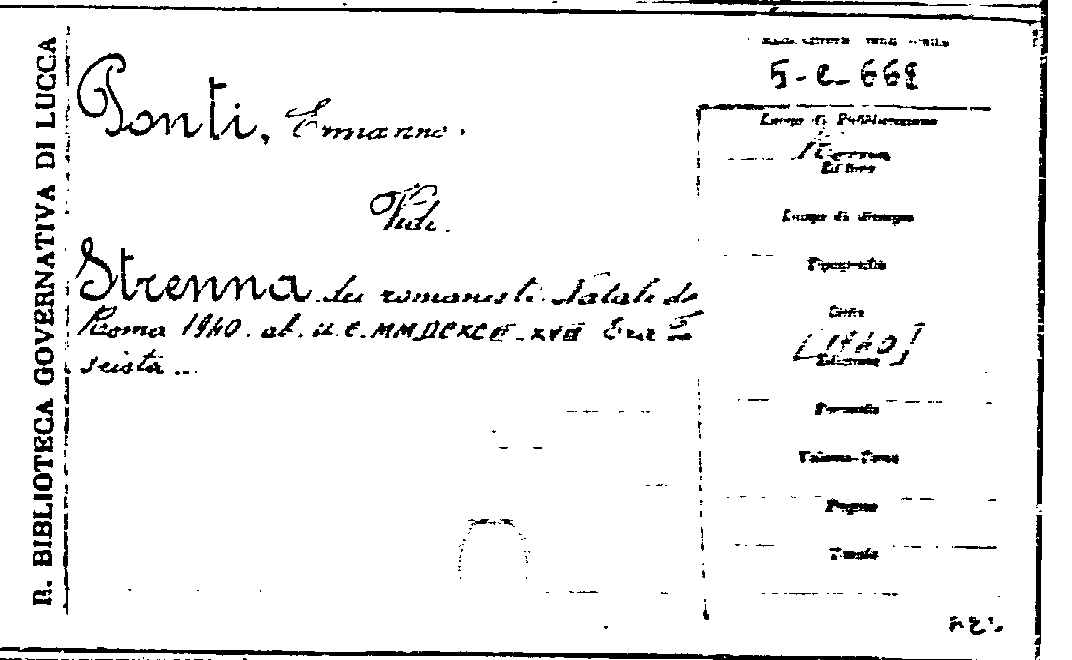 R. BIBLIOTECA GOVERNATIVA DI LUCCA
Ponti, Ermanno.
Vedi
Strenna dei romanisti. Natale di
Roma 1940. ab. U. C. MMDCXCIII - XVIII Era Fa
scista ...
5-C-668
Luogo di Pubblicazione
Roma
Editore
Luogo di stampa
Tipografia
Data
[1940]
Edizione
Formato
Volume-Tomo
Pagine
Tavole